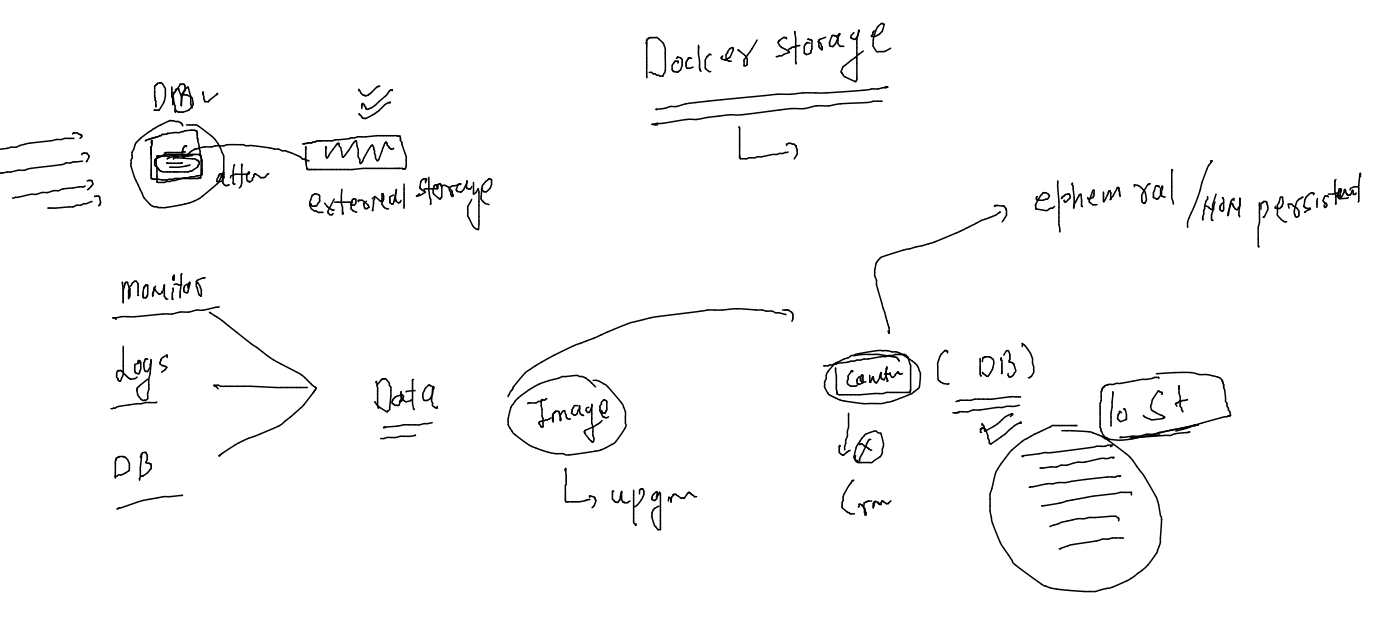 Docker storage
DB
atten
external storage
ephemral / NON persistent
monitor
Logs
DB
Data
Image
upgrn
(DB)
lost
(rm